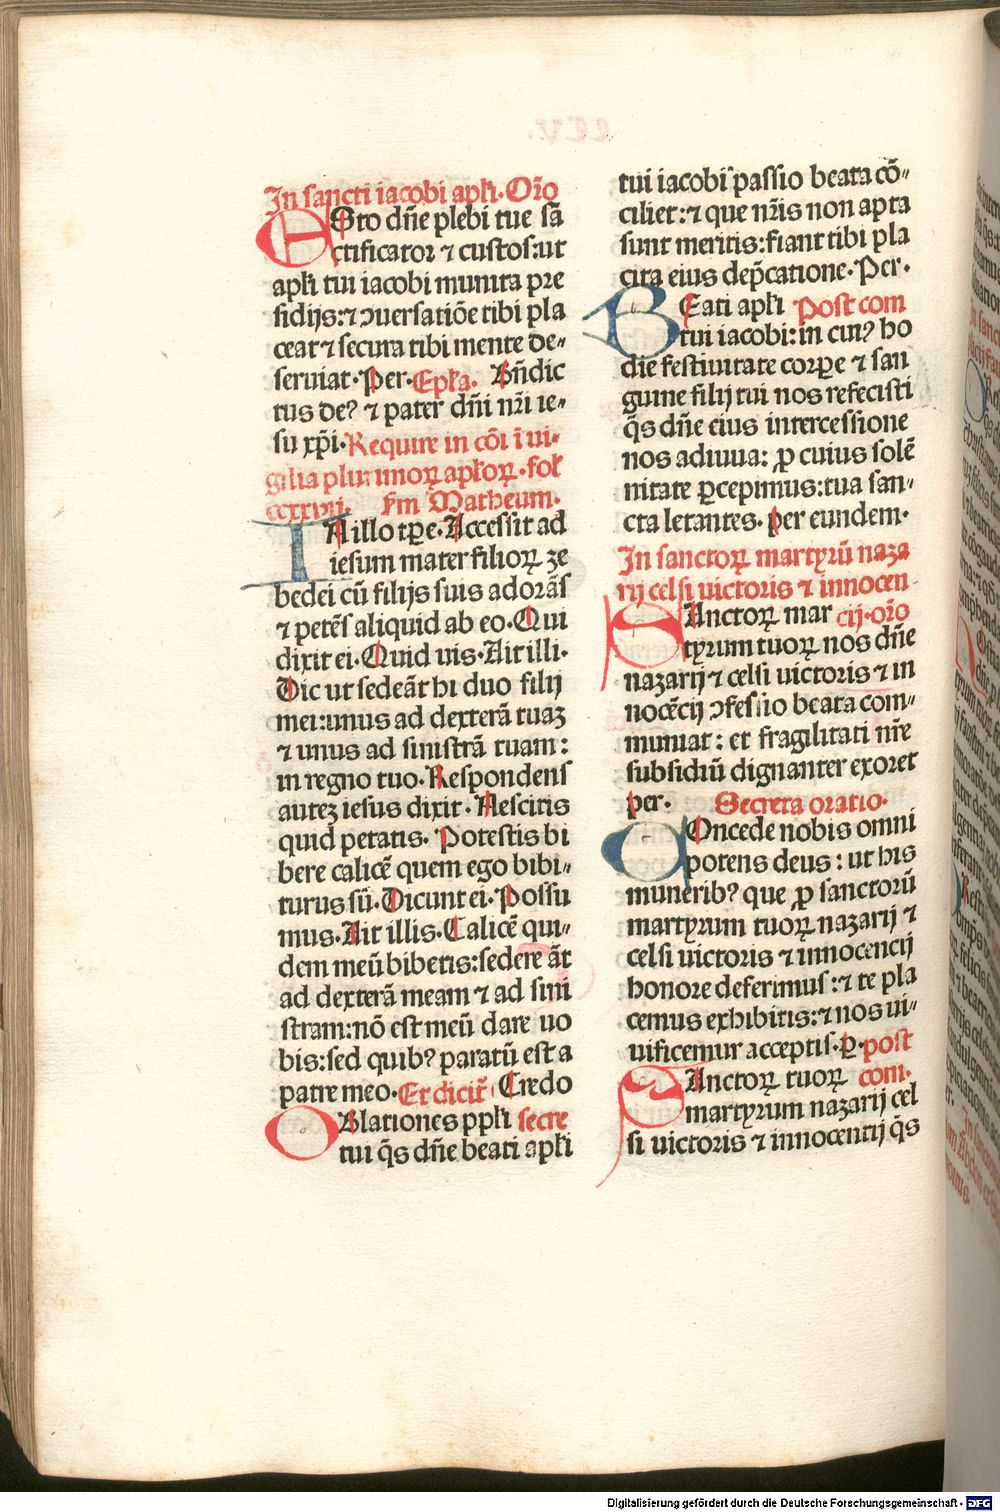 In sancti iacobi apłi. Orõ
ESto dñe plebi tue sã
ctificator ⁊ custos: ut
apłi tui iacobi munita pre
sidijs: ⁊ ↄuersatiõe tibi pla
ceat ⁊ secura tibi mente de⸗
seruiat. Per. Epła. Bñdic
tus de? ⁊ pater dñi nr̃i ie⸗
su xp̃i. Require in cõi ĩ ui⸗
gilia plurimoꝝ apłoꝝ. fol
ccxxvii. s̃m Matheum.
IN illo tꝑe. Accessit ad
iesum mater filioꝝ ze
bedei cũ filijs suis adorãs
⁊ petẽs aliquid ab eo. Qui
dixit ei. Quid uis. Ait illi.
Dic ut sedeãt hi duo filij
mei: unus ad dexterã tuaꝫ
⁊ unus ad sinistrã tuam:
in regno tuo. Respondens
auteꝫ iesus dixit. Nescitis
quid petatis. Potestis bi
bere calicẽ quem ego bibi⸗
turus sũ. Dicunt ei. Possu
mus. Ait illis. Calicẽ qui⸗
dem meũ bibetis: sedere ãt
ad dexterã meam ⁊ ad sini
stram: nõ est meũ dare uo
bis: sed quib? paratũ est a
patre meo. Et dicit̃ Credo
OBlationes ppłi secre
tui q̃s dñe beati apłi
tui iacobi passio beata cõ⸗
ciliet: ⁊ que nr̃is non apta
sunt meritis: fiant tibi pla
cita eius dep̃catione. Per.
BEati apłi Post com
tui iacobi: in cui? ho
die festiuitate corꝑe ⁊ san
guine filij tui nos refecisti
q̃s dñe eius intercessione
nos adiuua: ꝓ cuius solẽ
nitate ꝑcepimus: tua san⸗
cta letantes. per eundem.
In sanctoꝝ martyrũ naza
rij celsi uictoris ⁊ innocen
SAnctoꝝ mar cij. orõ
tyrum tuoꝝ nos dñe
nazarij ⁊ celsi uictoris ⁊ in
nocẽcij ↄfessio beata com⸗
muniat: et fragilitati nr̃e
subsidiũ dignanter exoret
per. Secreta oratio.
COncede nobis omni
potens deus: ut his
munerib? que ꝓ sanctorũ
martyrum tuoꝝ nazarij ⁊
celsi uictoris ⁊ innocencij
honore deferimus: ⁊ te pla
cemus exhibitis: ⁊ nos ui⸗
uificemur acceptis. ꝑ. post
SAnctoꝝ tuoꝝ com.
martyrum nazarij cel
si uictoris ⁊ innocentij q̃s
Digitalisierung gefördert durch die Deutsche Forschungsgemeinschaft - DFG